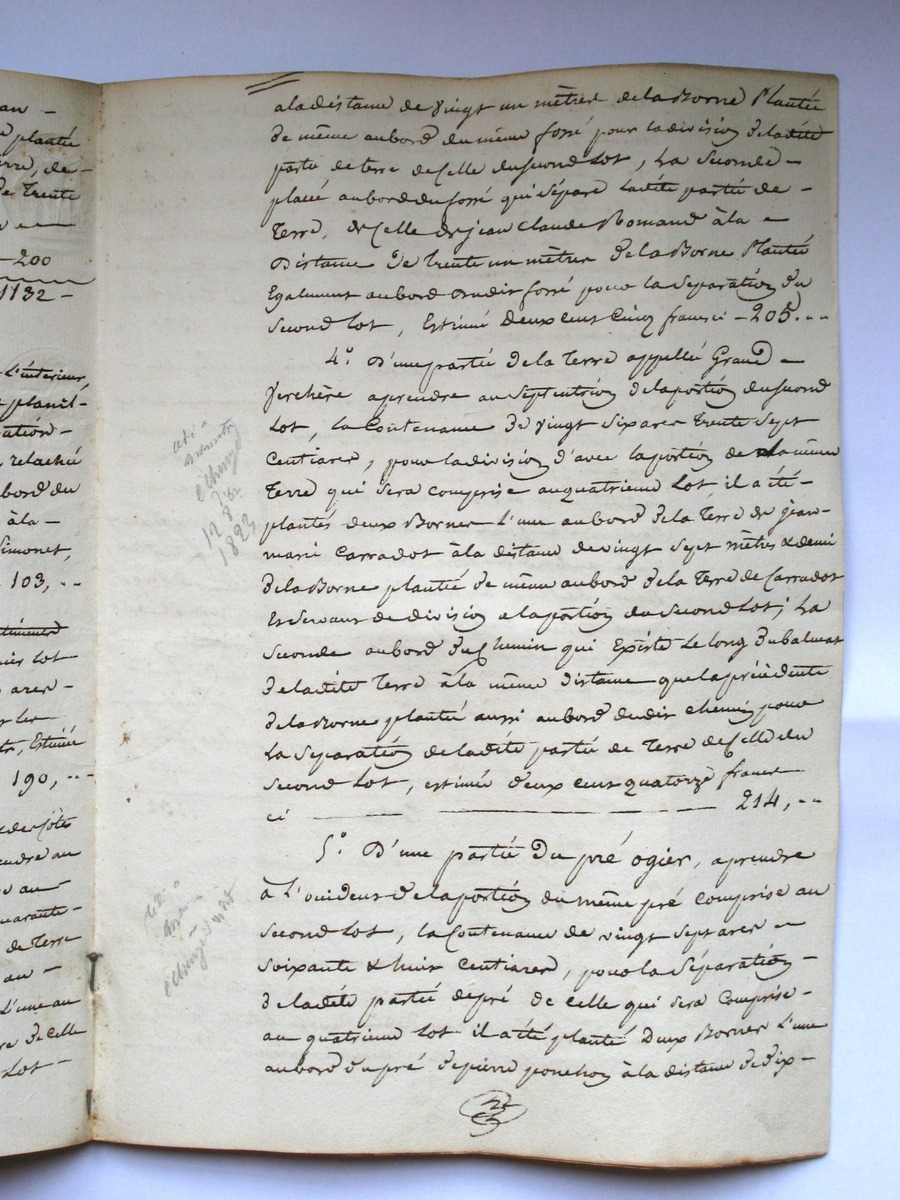 an -
planté
terre, de-
de Trente
-200
1132 -
L'interieur
planti-
ration-
relaché
bord du
àla -
Simonet,
103, --
lot
ares -
Estimée
190, --
des Côtés
prendre au
au -
quarante-
de Terre
au -
L'une au
de celle
Lot -
aladistance de vingt un mètres delaBorne Plantée
de même aubord dumême fossé pour ladivision deladite
partie de terre de Celle duSecond Lot, La Seconde -
placée aubord du fossé qui sépare Ladite partie de -
Terre, de Celle de jean Claude Romand àla -
Distance De trente un mètres delaBorne Plantée
Egalement aubord dudit fossé pour la Séparation du
Second Lot, Estimée Deux cent Cinq francs ci - 205. --
4.° D'une partie de la Terre appellée Grand -
Verchère aprendre au Septentrion delaportion dusecond
Lot, la Contenance De vingt Six ares trente Sept
Centiares, pour ladivision d'avec laportion de la même
Terre qui sera comprise auquatrieme Lot il a été -
plantés deux Bornes L'une aubord delaTerre de jean-
marie Carradot àla distance devingt Sept mètres & demi
delaBorne plantée de même aubord dela Terre de Carradot
Et Servant de division alaportion du Second Lot; La
Seconde aubord du Chemin qui Existe Le long Dubalmat
deladite Terre àla même distance que laprécédente
delaBorne plantée aussi aubord dudit chemin pour
La Séparation deladite partie de Terre de Celle du
Second Lot, estimée deux cent quatorze francs
ci 214, --
5.° D'une partie Du pré ogier, aprendre
à L'occident delaportion du même pré Comprise au
Second Lot, la Contenance de vingt Sept ares -
Soixante & huit Centiares, pour la Séparation -
deladite partie depré de Celle qui sera Comprise -
au quatrieme Lot il a été planté Deux Bornes L'une
aubord dupré depierre ponchon àla distance de dix -
cédé a
échangé
12 8bre
1823
cédé a
échangé